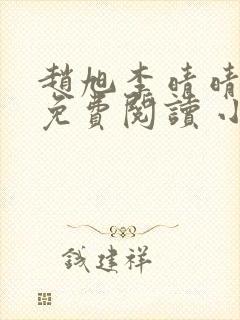 趙旭李晴晴
免費閱讀小
錢建祥